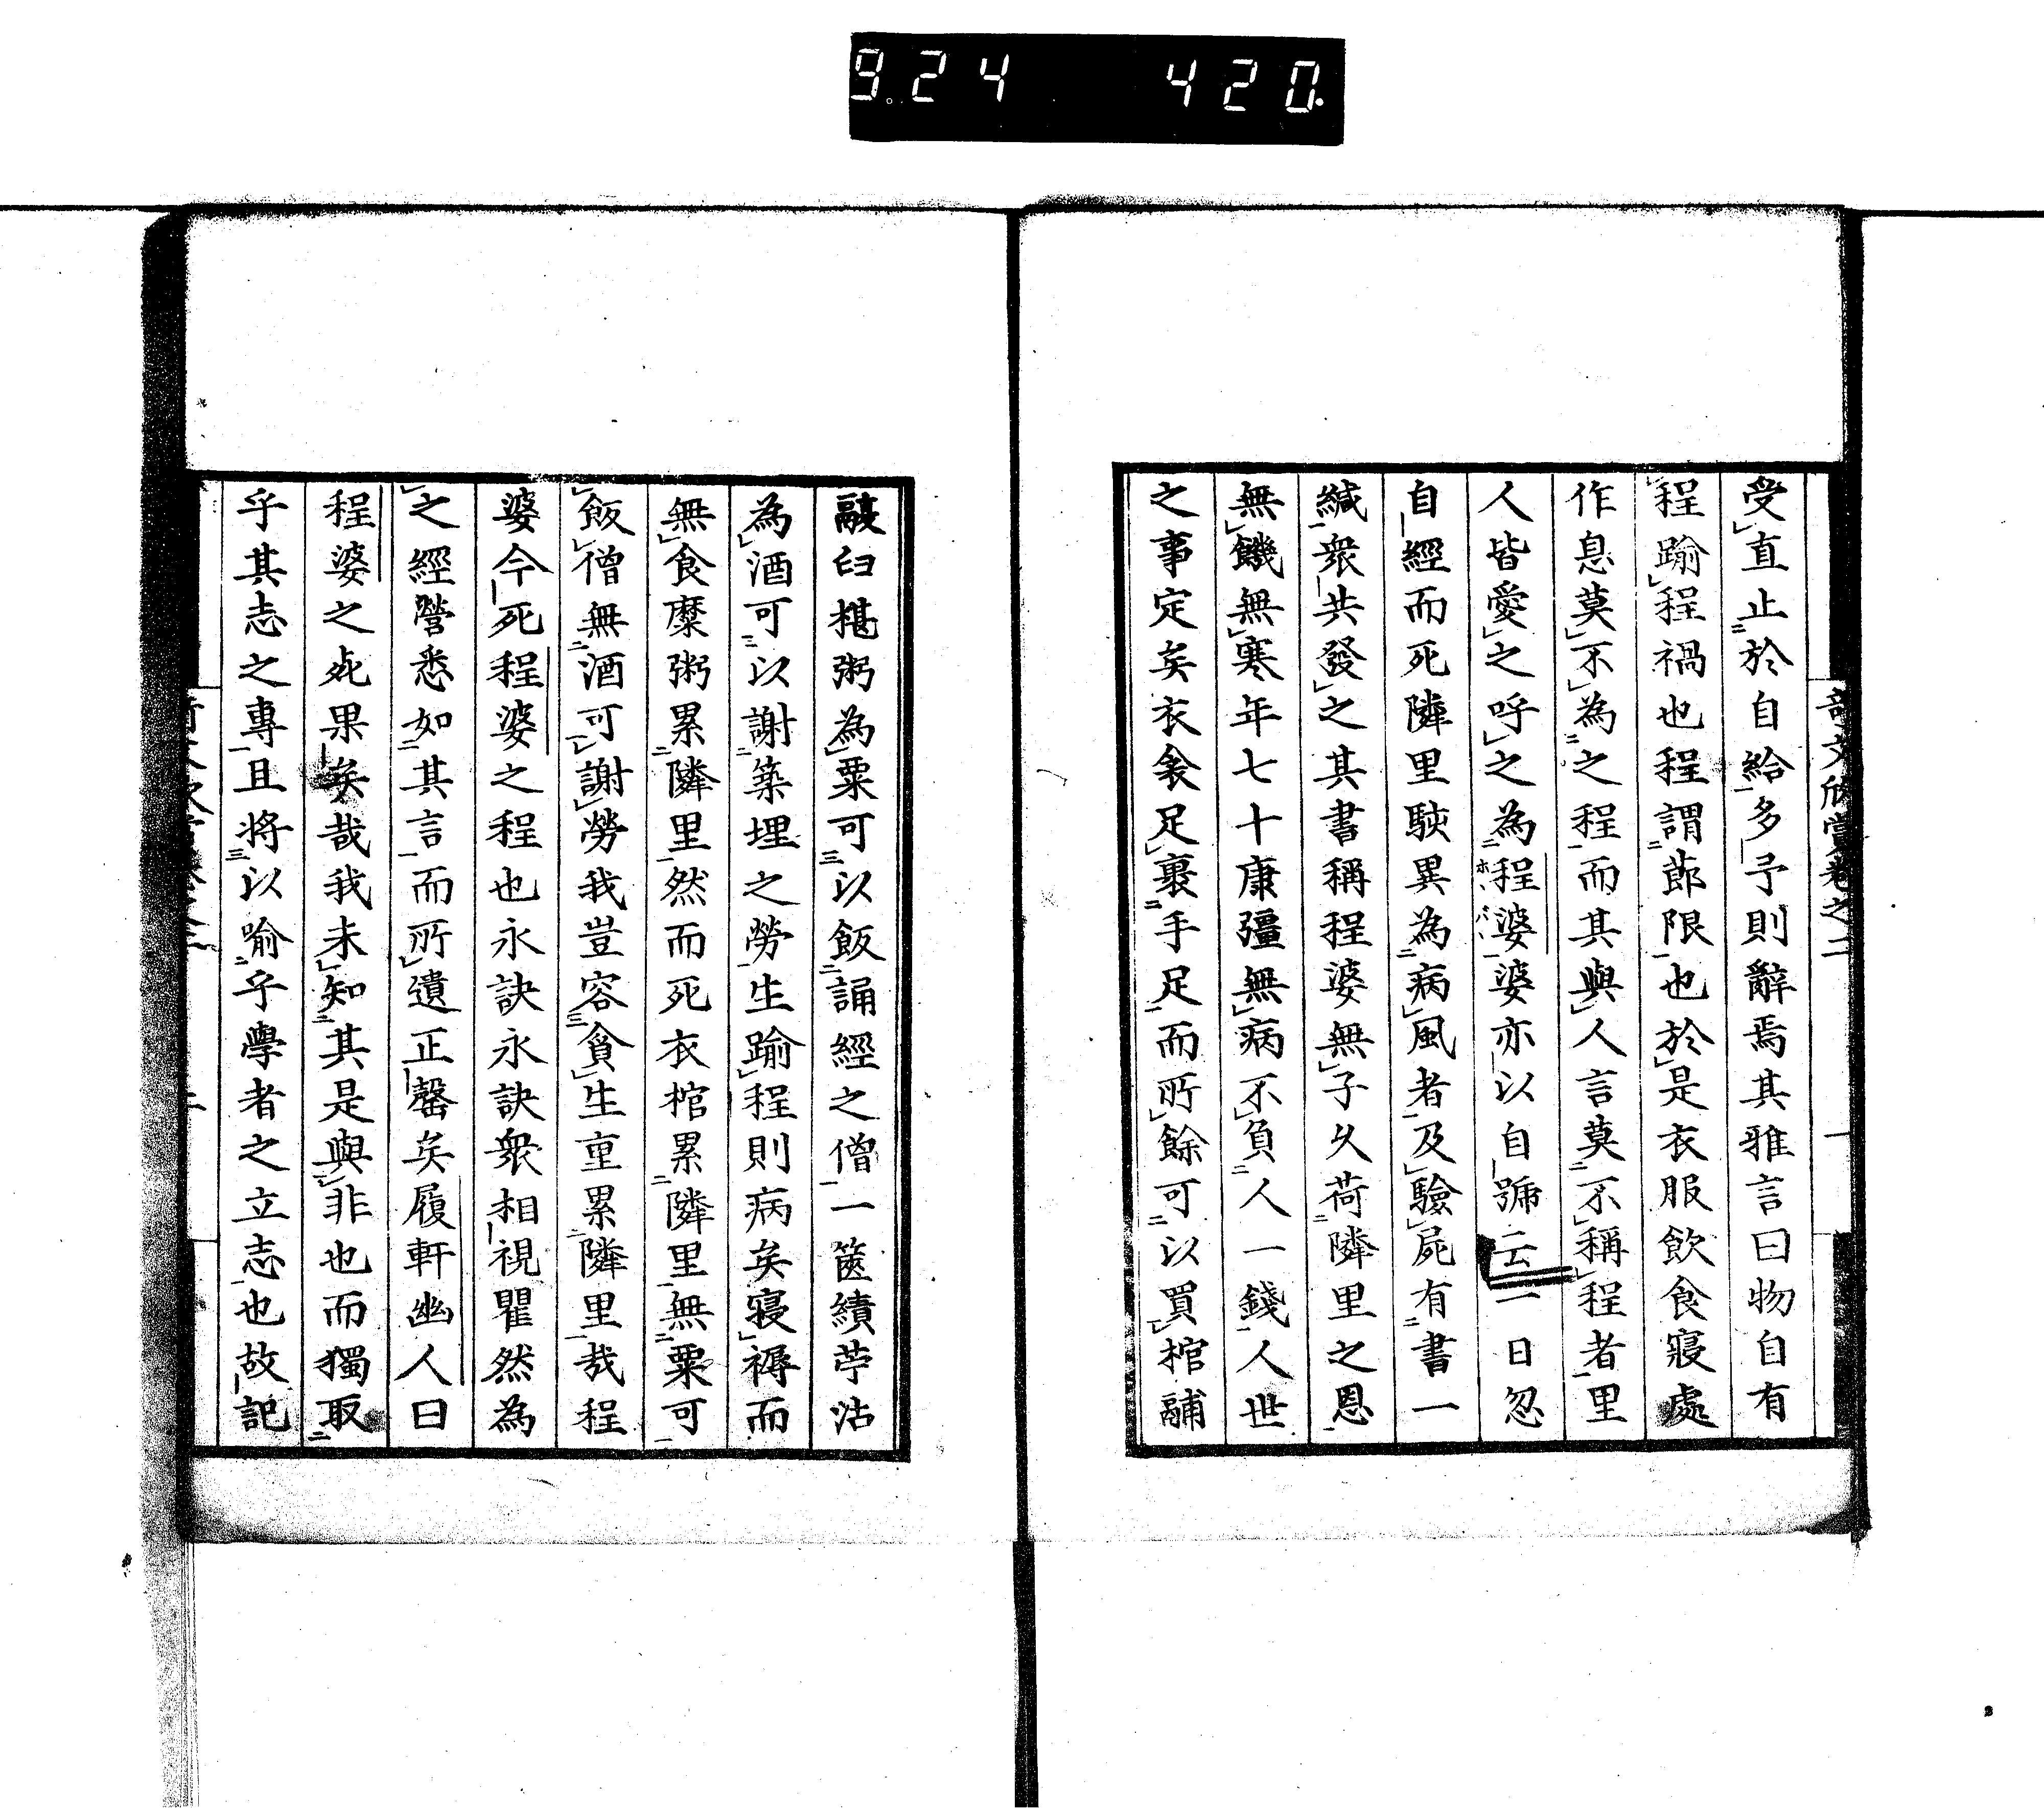 9.24 420.
受直止於自給多予則辭焉其雅言曰物自有
程踰程禍也程謂節限也於是衣服飲食寢處
作息莫不為之程而其與人言莫不稱程者里
人皆愛之呼之為程婆婆亦以自號云一日忽
自經而死隣里駛異為病風者及驗屍有書一
緘衆共發之其書稱程婆無子久荷隣里之恩
無饑無寒年七十康彊無病不負人一錢人世
之事定矣衣衾足裹手足而所餘可以買棺鬴
鬷臼椹粥為粟可以飯誦經之僧一篋績苧沽
為酒可以謝築埋之勞生踰程則病矣寢褥而
無食糜粥累隣里然而死衣棺累隣里無粟可
飯僧無酒可謝勞我豈容貪生重累隣里哉程
婆今死程婆之程也永訣永訣衆相視瞿然為
之經營悉如其言而所遺正罄矣履軒幽人曰
程婆之死果矣哉我未知其是與非也而獨取
乎其志之專且將以喻乎學者之立志也故記